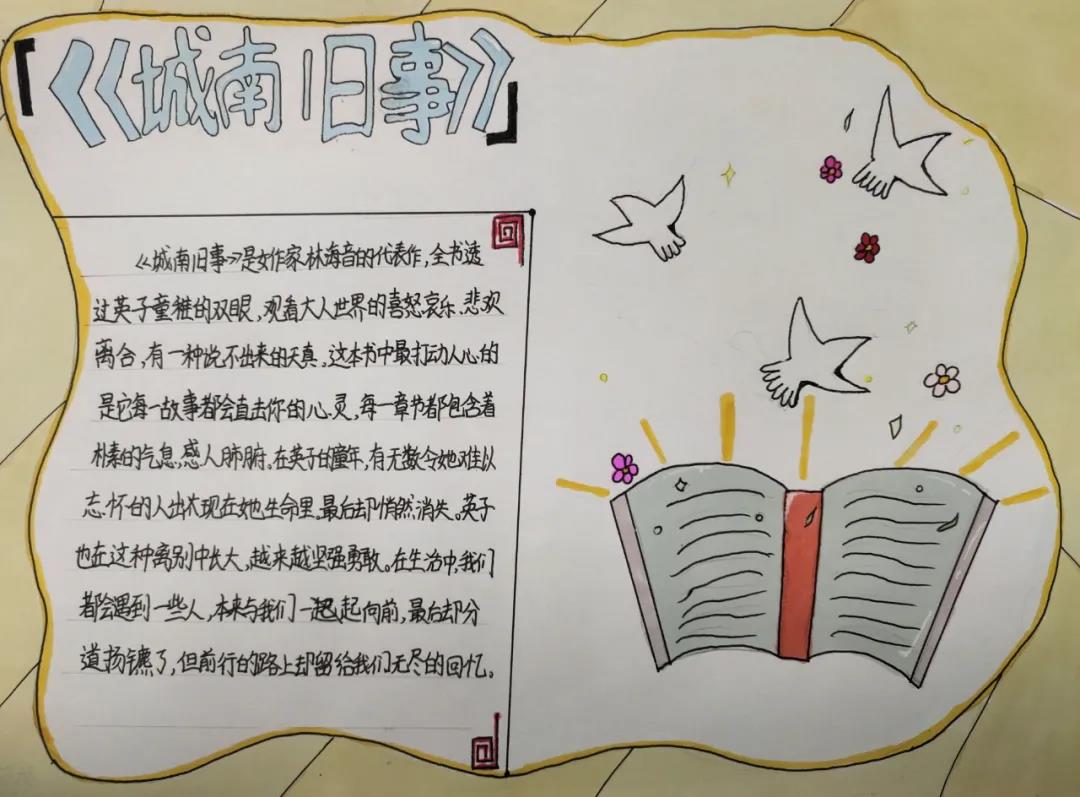 「《城南旧事》」
《城南旧事》是女作家林海音的代表作,全书透
过英子童稚的双眼,观看大人世界的喜怒哀乐、悲欢
离合,有一种说不出来的天真。这本书中最打动人心的
是它每一故事都会直击你的心灵,每一章节都包含着
朴素的气息,感人肺腑。在英子的童年,有无数令她难以
忘怀的人出现在她生命里,最后却悄然消失。英子
也在这种离别中长大,越来越坚强勇敢。在生活中,我们
都会遇到一些人,本来与我们一起起向前,最后却分
道扬镳了,但前行的路上却留给我们无尽的回忆。